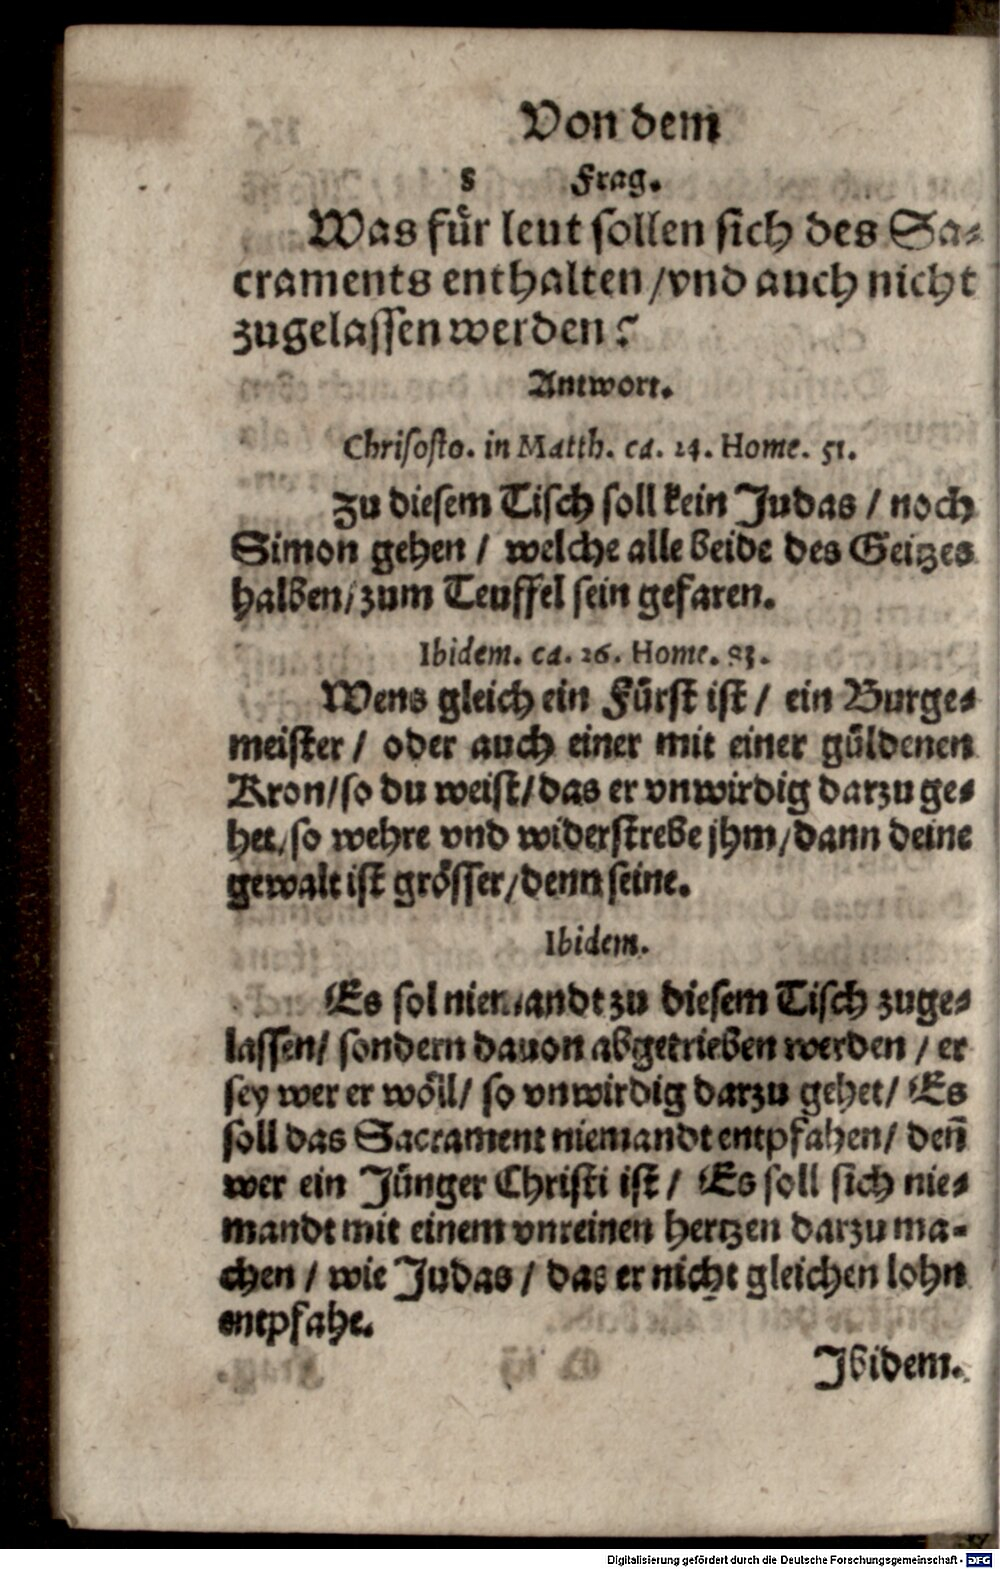 Von dem
8 Frag.
Was für leut sollen sich des Sa-
craments enthalten / vnd auch nicht
zugelassen werden?
Antwort.
Chrisosto. in Matth. ca. 24. Home. 51.
Zu diesem Tisch soll kein Judas / noch
Simon gehen / welche alle beide des Geitzes
halben / zum Teuffel sein gefaren.
Ibidem. ca. 26. Home. 83.
Wens gleich ein Fürst ist / ein Burge-
meister / oder auch einer mit einer güldenen
Kron / so du weist / das er vnwirdig darzu ge-
het / so wehre vnd widerstrebe jhm / dann deine
gewalt ist grösser / denn seine.
Ibidem.
Es sol niemandt zu diesem Tisch zuge-
lassen / sondern dauon abgetrieben werden / er
sey wer er wöll / so vnwirdig darzu gehet / Es
soll das Sacrament niemandt entpfahen / deñ
wer ein Jünger Christi ist / Es soll sich nie-
mandt mit einem vnreinen hertzen darzu ma-
chen / wie Judas / das er nicht gleichen lohn
entpfahe.
Ibidem.
Digitalisierung gefördert durch die Deutsche Forschungsgemeinschaft - DFG